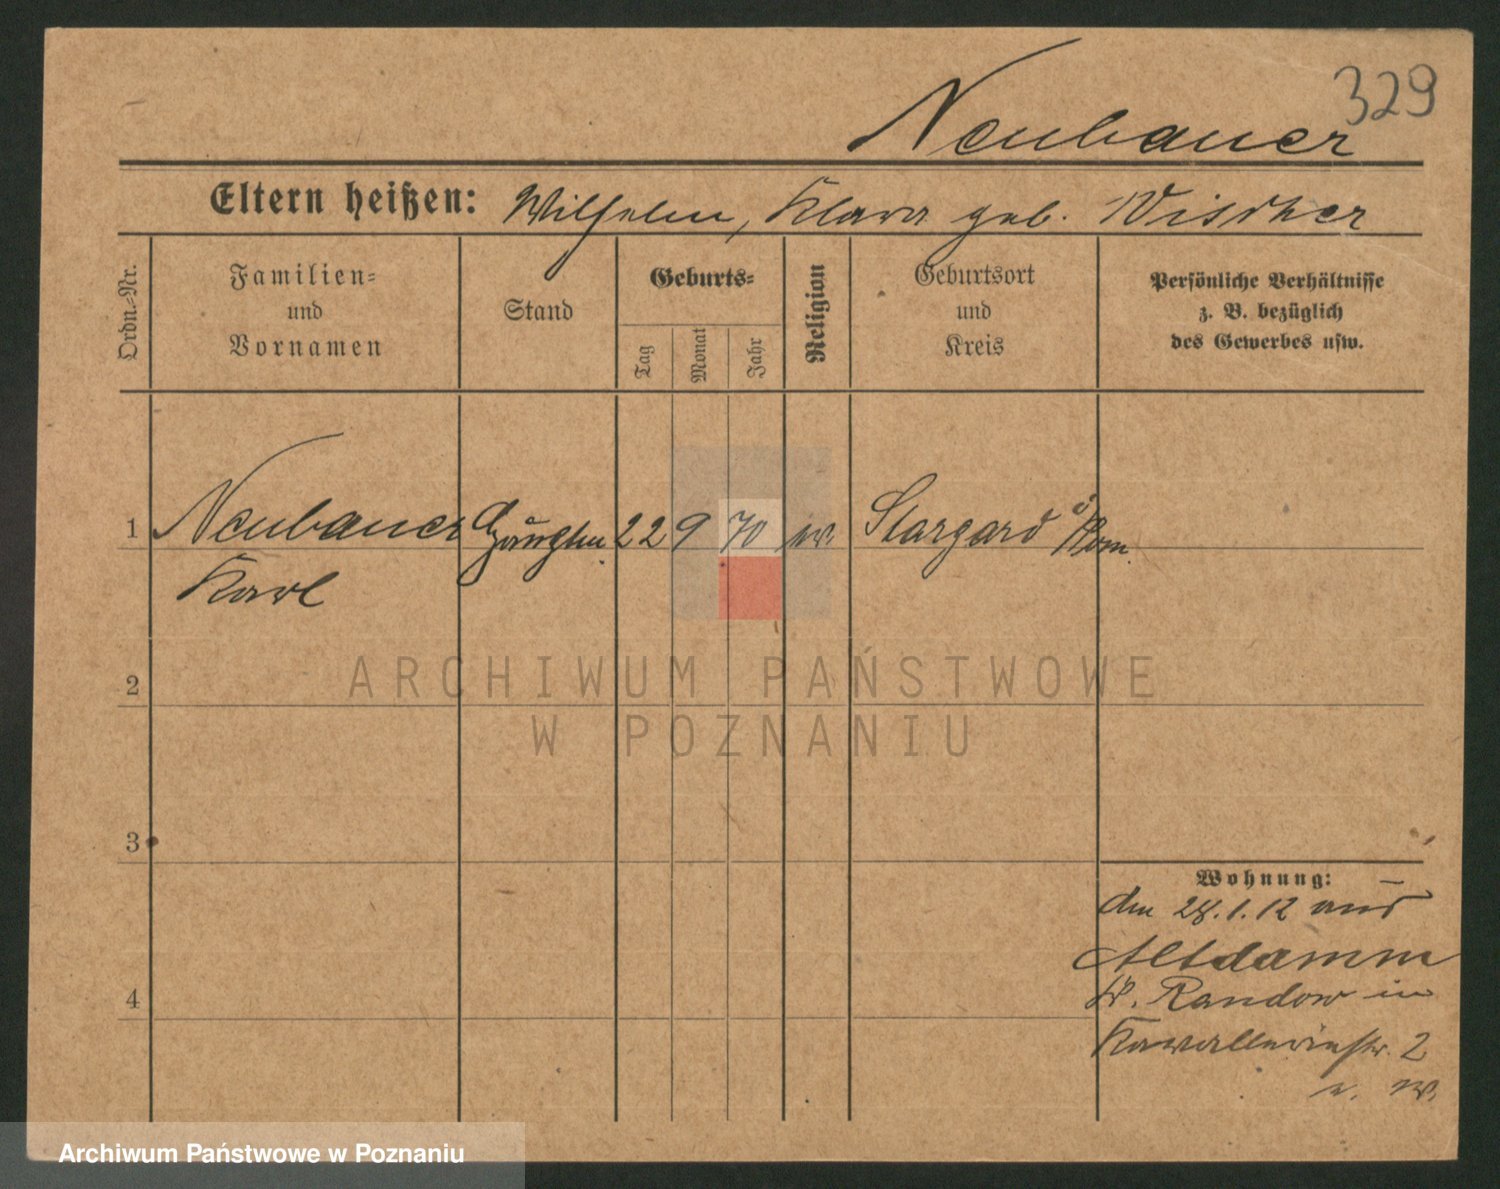 329
Neubauer
Eltern heißen: Wilhelm, Klara geb. Vischer
Ordn.-Nr.
Familien-
und
Vornamen
Stand
Geburts-
Tag
Monat
Jahr
Religion
Geburtsort
und
Kreis
Persönliche Verhältnisse
z. B. bezüglich
des Gewerbes usw.
1 Neubauer 22 9 70 ev. Stargard Pom.
Karl
2
3
4
Wohnung:
den 28.1.12 aus
Altdamm
Kr. Randow in
Kavalleriestr. 2
ARCHIWUM PAŃSTWOWE
W POZNANIU
Archiwum Państwowe w Poznaniu